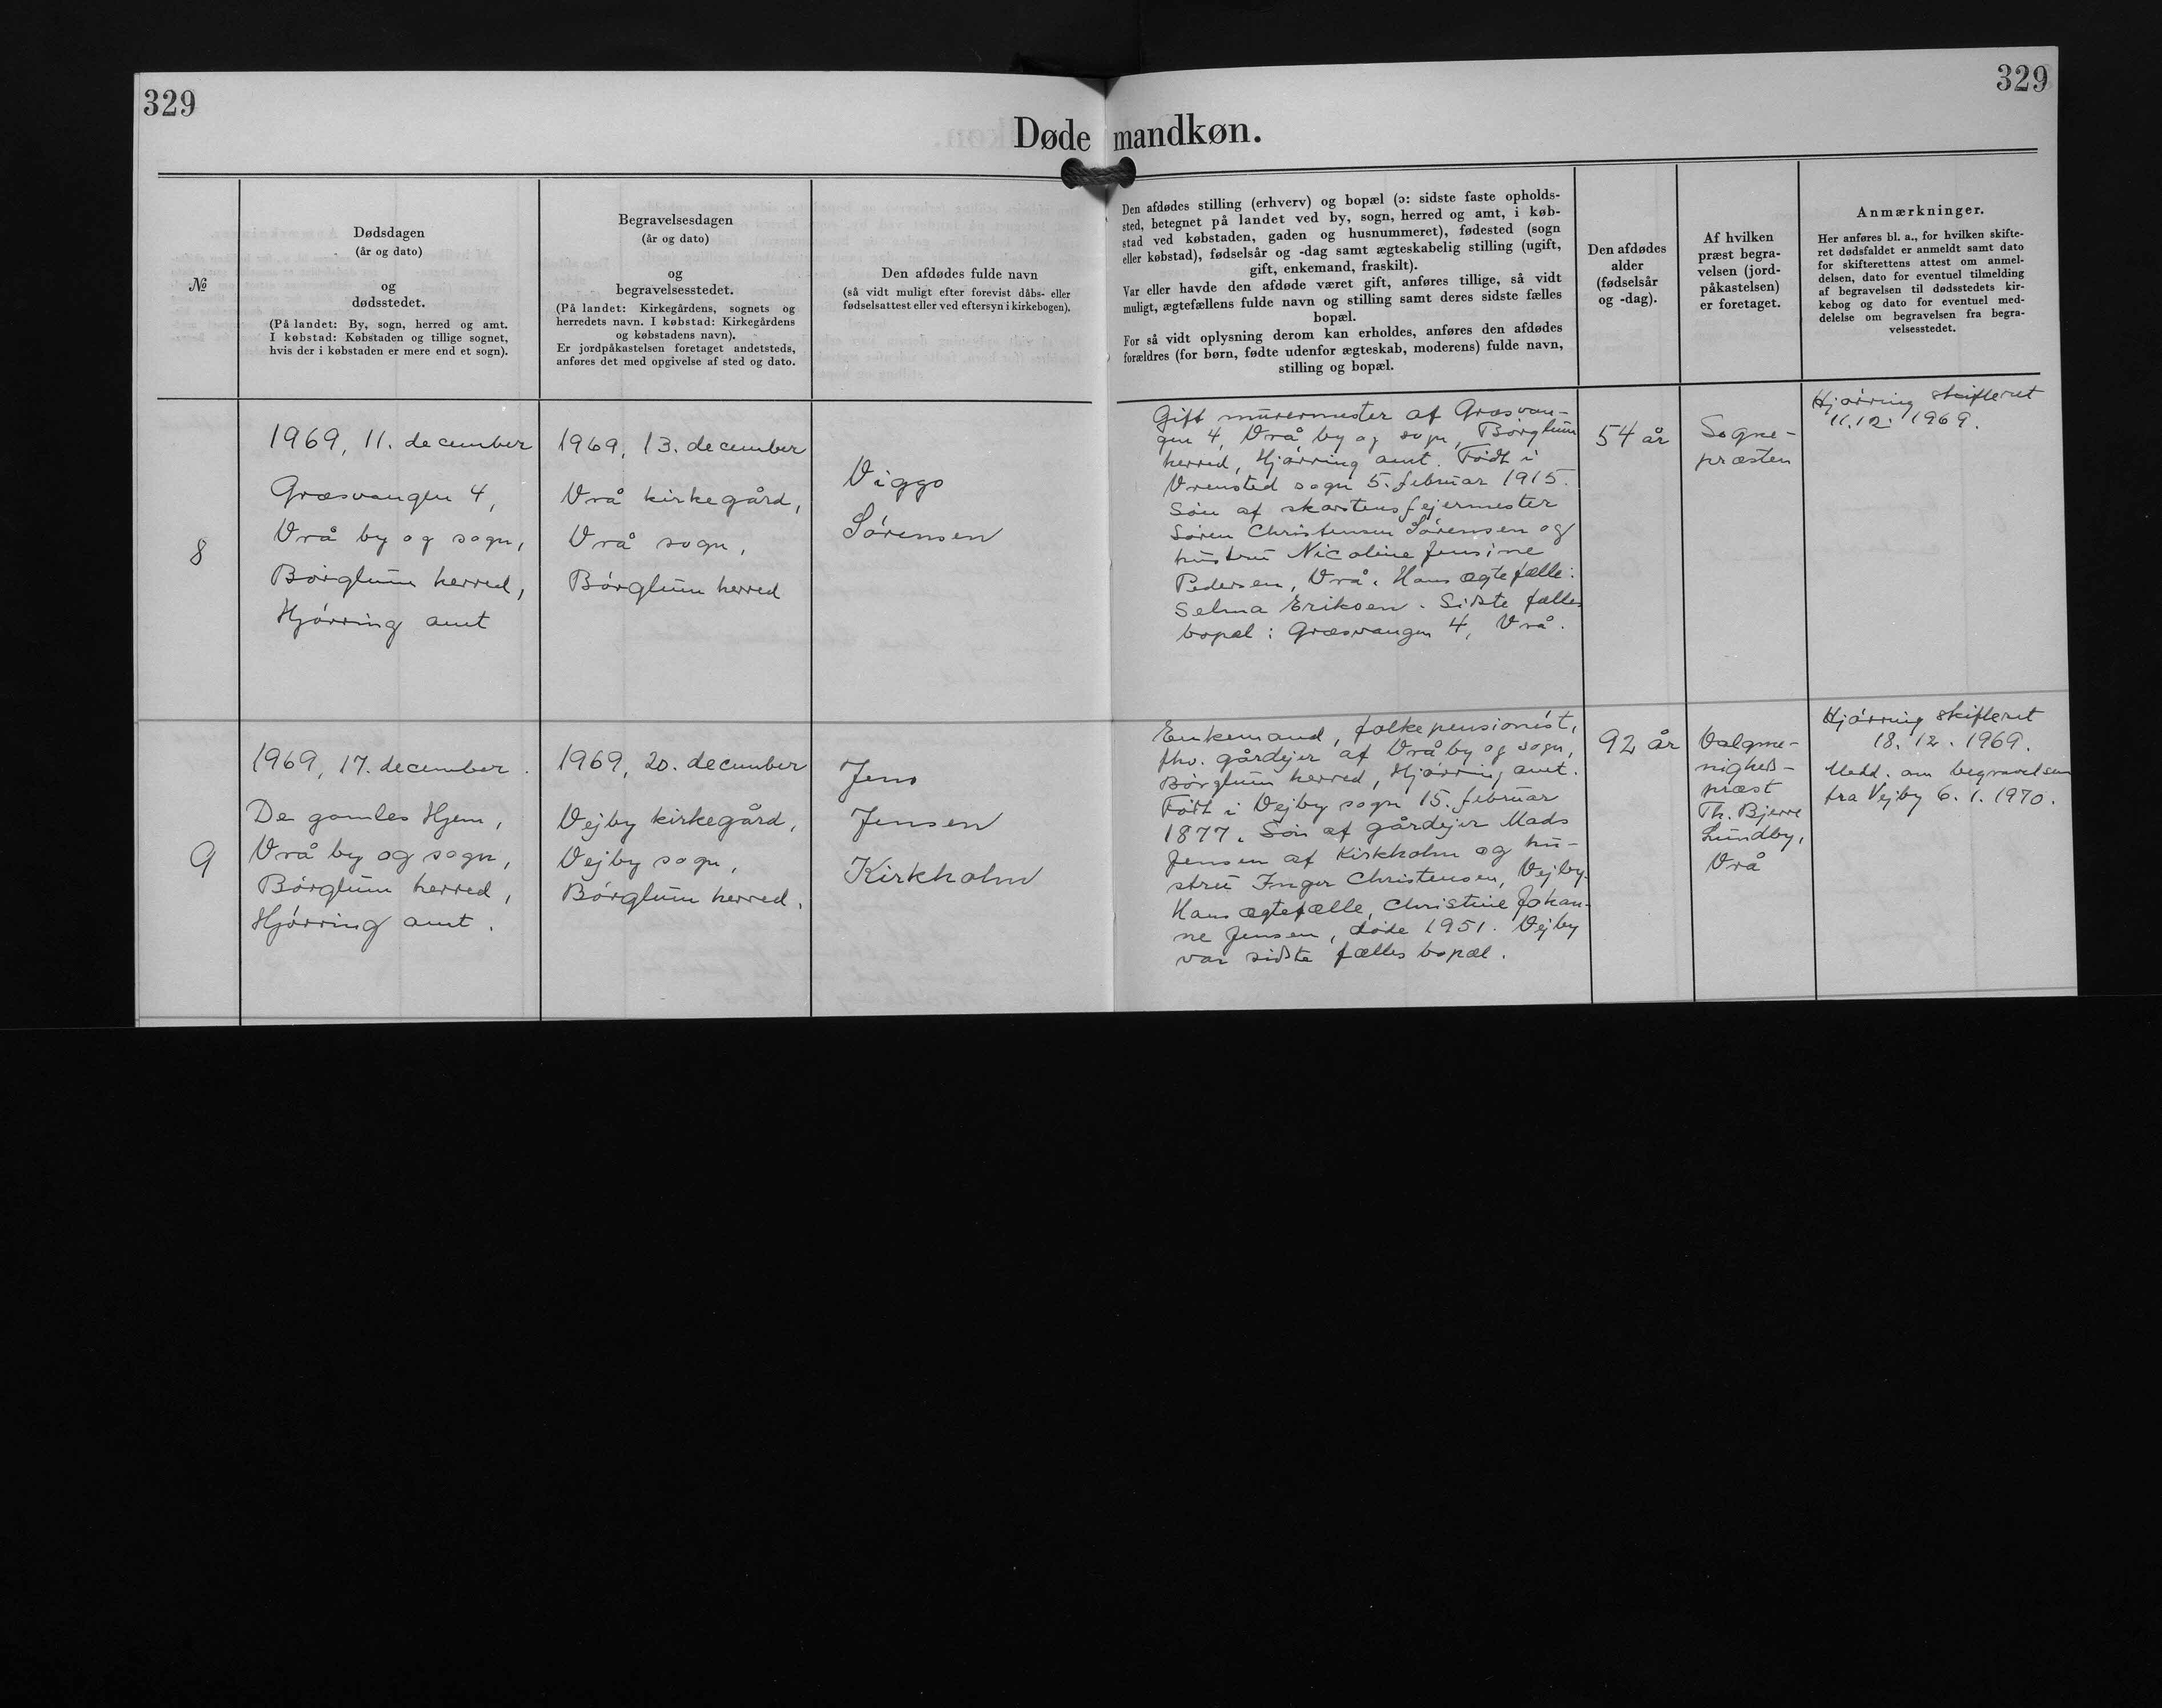 329
329
Døde mandkøn.
№
Dødsdagen
(år og dato)
og
dødsstedet.
(På landet: By, sogn, herred og amt.
I købstad: Købstaden og tillige sognet,
hvis der i købstaden er mere end et sogn).
Begravelsesdagen
(år og dato)
og
begravelsesstedet.
(På landet: Kirkegårdens, sognets og
herredets navn. I købstad: Kirkegårdens
og købstadens navn).
Er jordpåkastelsen foretaget andetsteds,
anføres det med opgivelse af sted og dato.
Den afdødes fulde navn
(så vidt muligt efter forevist dåbs- eller
fødselsattest eller ved eftersyn i kirkebogen).
Den afdødes stilling (erhverv) og bopæl (ɔ: sidste faste opholds-
sted, betegnet på landet ved by, sogn, herred og amt, i køb-
stad ved købstaden, gaden og husnummeret), fødested (sogn
eller købstad), fødselsår og -dag samt ægteskabelig stilling (ugift,
gift, enkemand, fraskilt).
Var eller havde den afdøde været gift, anføres tillige, så vidt
muligt, ægtefællens fulde navn og stilling samt deres sidste fælles
bopæl.
For så vidt oplysning derom kan erholdes, anføres den afdødes
forældres (for børn, fødte udenfor ægteskab, moderens) fulde navn,
stilling og bopæl.
Den afdødes
alder
(fødselsår
og -dag).
Af hvilken
præst begra-
velsen (jord-
påkastelsen)
er foretaget.
Anmærkninger.
Her anføres bl. a., for hvilken skifte-
ret dødsfaldet er anmeldt samt dato
for skifterettens attest om anmel-
delsen, dato for eventuel tilmelding
af begravelsen til dødsstedets kir-
kebog og dato for eventuel med-
delelse om begravelsen fra begra-
velsesstedet.
8
1969, 11. december
Græsvangen 4,
Vrå by og sogn,
Børglum herred,
Hjørring amt
1969, 13. december
Vrå kirkegård,
Vrå sogn,
Børglum herred
Viggo
Sørensen
Gift murermester af Græsvan-
gen 4, Vrå by og sogn, Børglum
herred, Hjørring amt. Født i
Vrensted sogn 5. februar 1915.
Søn af skorstensfejermester
Søren Christensen Sørensen og
hustru Nicoline Jensine
Pedersen, Vrå. Hans ægtefælle:
Selma Eriksen. Sidste fælles
bopæl: Græsvangen 4, Vrå.
54 år
Sogne-
præsten
Hjørring skifteret
11.12. 1969.
9
1969, 17. december.
De gamles Hjem,
Vrå by og sogn,
Børglum herred,
Hjørring amt.
1969, 20. december
Vejby kirkegård,
Vejby sogn,
Børglum herred.
Jens
Jensen
Kirkholm
Enkemand, folkepensionist,
fhv. gårdejer af Vrå by og sogn,
Børglum herred, Hjørring amt.
Født i Vejby sogn 15. februar
1877. Søn af gårdejer Mads
Jensen af Kirkholm og hu-
stru Inger Christensen, Vejby.
Hans ægtefælle, Christine Johan-
ne Jensen, døde 1951. Vejby
var sidste fælles bopæl.
92 år
Valgme-
nigheds-
præst
Th. Bjerre
Lundby,
Vrå
Hjørring skifteret
18. 12. 1969.
Medd. om begravelsen
fra Vejby 6. 1. 1970.